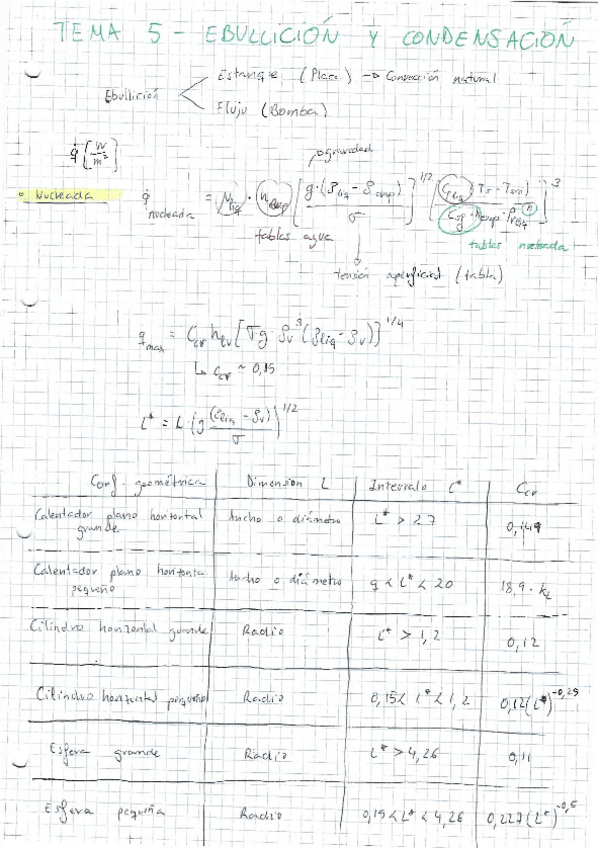 TEMA 5 - EBULLICIÓN Y CONDENSACIÓN
Ebullición
Estanque (Placa) → Convección natural
Flujo (Bomba)
q̇ [W/m²]
gravedad
• Nucleada
q̇ nucleada = μ_liq · h_evap [g·(ρ_liq - ρ_evap)/σ]^1/2 [C_p liq (T_s - T_sat)/C_sf · h_evap · Pr_liq^n]^3
tablas agua
tablas nucleada
tensión superficial (tabla)
q_max = C_cr h_fv [σ g · ρ_v^2 (ρ_liq - ρ_v)]^1/4
↳ C_cr ~ 0,15
L* = L (g (ρ_liq - ρ_v)/σ)^1/2
Conf. geométrica | Dimension L | Intervalo L* | C_cr
Calentador plano horizontal grande | Ancho o diámetro | L* > 27 | 0,149
Calentador plano horizonta pequeño | Ancho o diámetro | 9 < L* < 20 | 18,9 · k_L
Cilindro horizontal grande | Radio | L* > 1,2 | 0,12
Cilindro horizontal pequeño | Radio | 0,15 < L* < 1,2 | 0,12 (L*)^-0,25
Esfera grande | Radio | L* > 4,26 | 0,11
Esfera pequeña | Radio | 0,15 < L* < 4,26 | 0,227 (L*)^-0,5